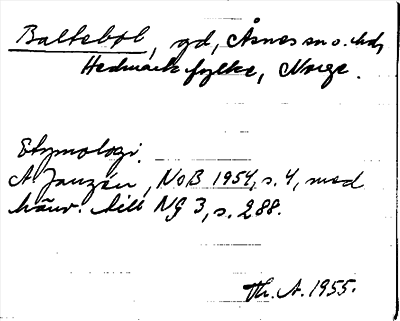 Baltebøl, gd, Åsnes sn o. hd,
Hedmark fylke, Norge.
Etymologi.
A Janzén, NoB 1954, s. 4, med
hänv. till NG 3, s. 288.
Th. A. 1955.